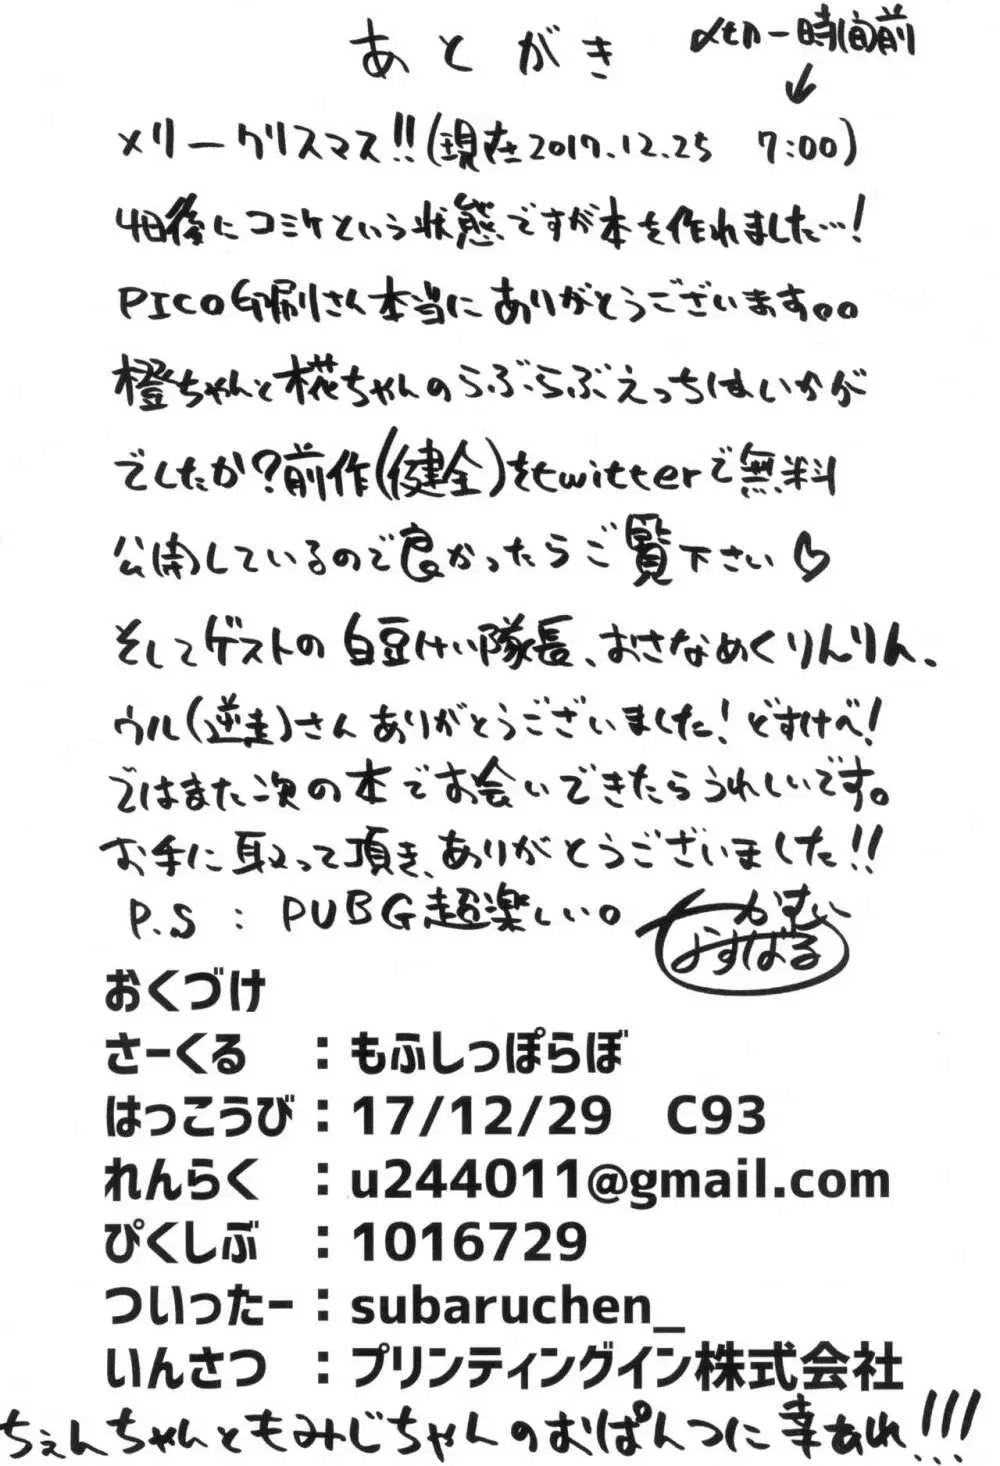 あとがき
〆切一時間前
↓
メリークリスマス!!(現在2017.12.25 7:00)
4日後にコミケという状態ですが本を作れました…!
PICO印刷さん本当にありがとうございます。。
橙ちゃんと椛ちゃんのらぶらぶえっちはいかが
でしたか?前作(健全)をtwitterで無料
公開しているので良かったらご覧下さい♡
そしてゲストの白豆けい隊長、おさなめくりんりん、
ウル(逆走)さんありがとうございました!どすけべ!
ではまた次の本でお会いできたらうれしいです。
お手に取って頂き、ありがとうございました!!
P.S : PUBG超楽しい。
かむい
おくづけ
さーくる :もふしっぽらぼ
はっこうび:17/12/29 C93
れんらく :u244011@gmail.com
ぴくしぶ :1016729
ついったー:subaruchen_
いんさつ :プリンティングイン株式会社
ちぇんちゃんともみじちゃんのおぱんつに幸あれ!!!